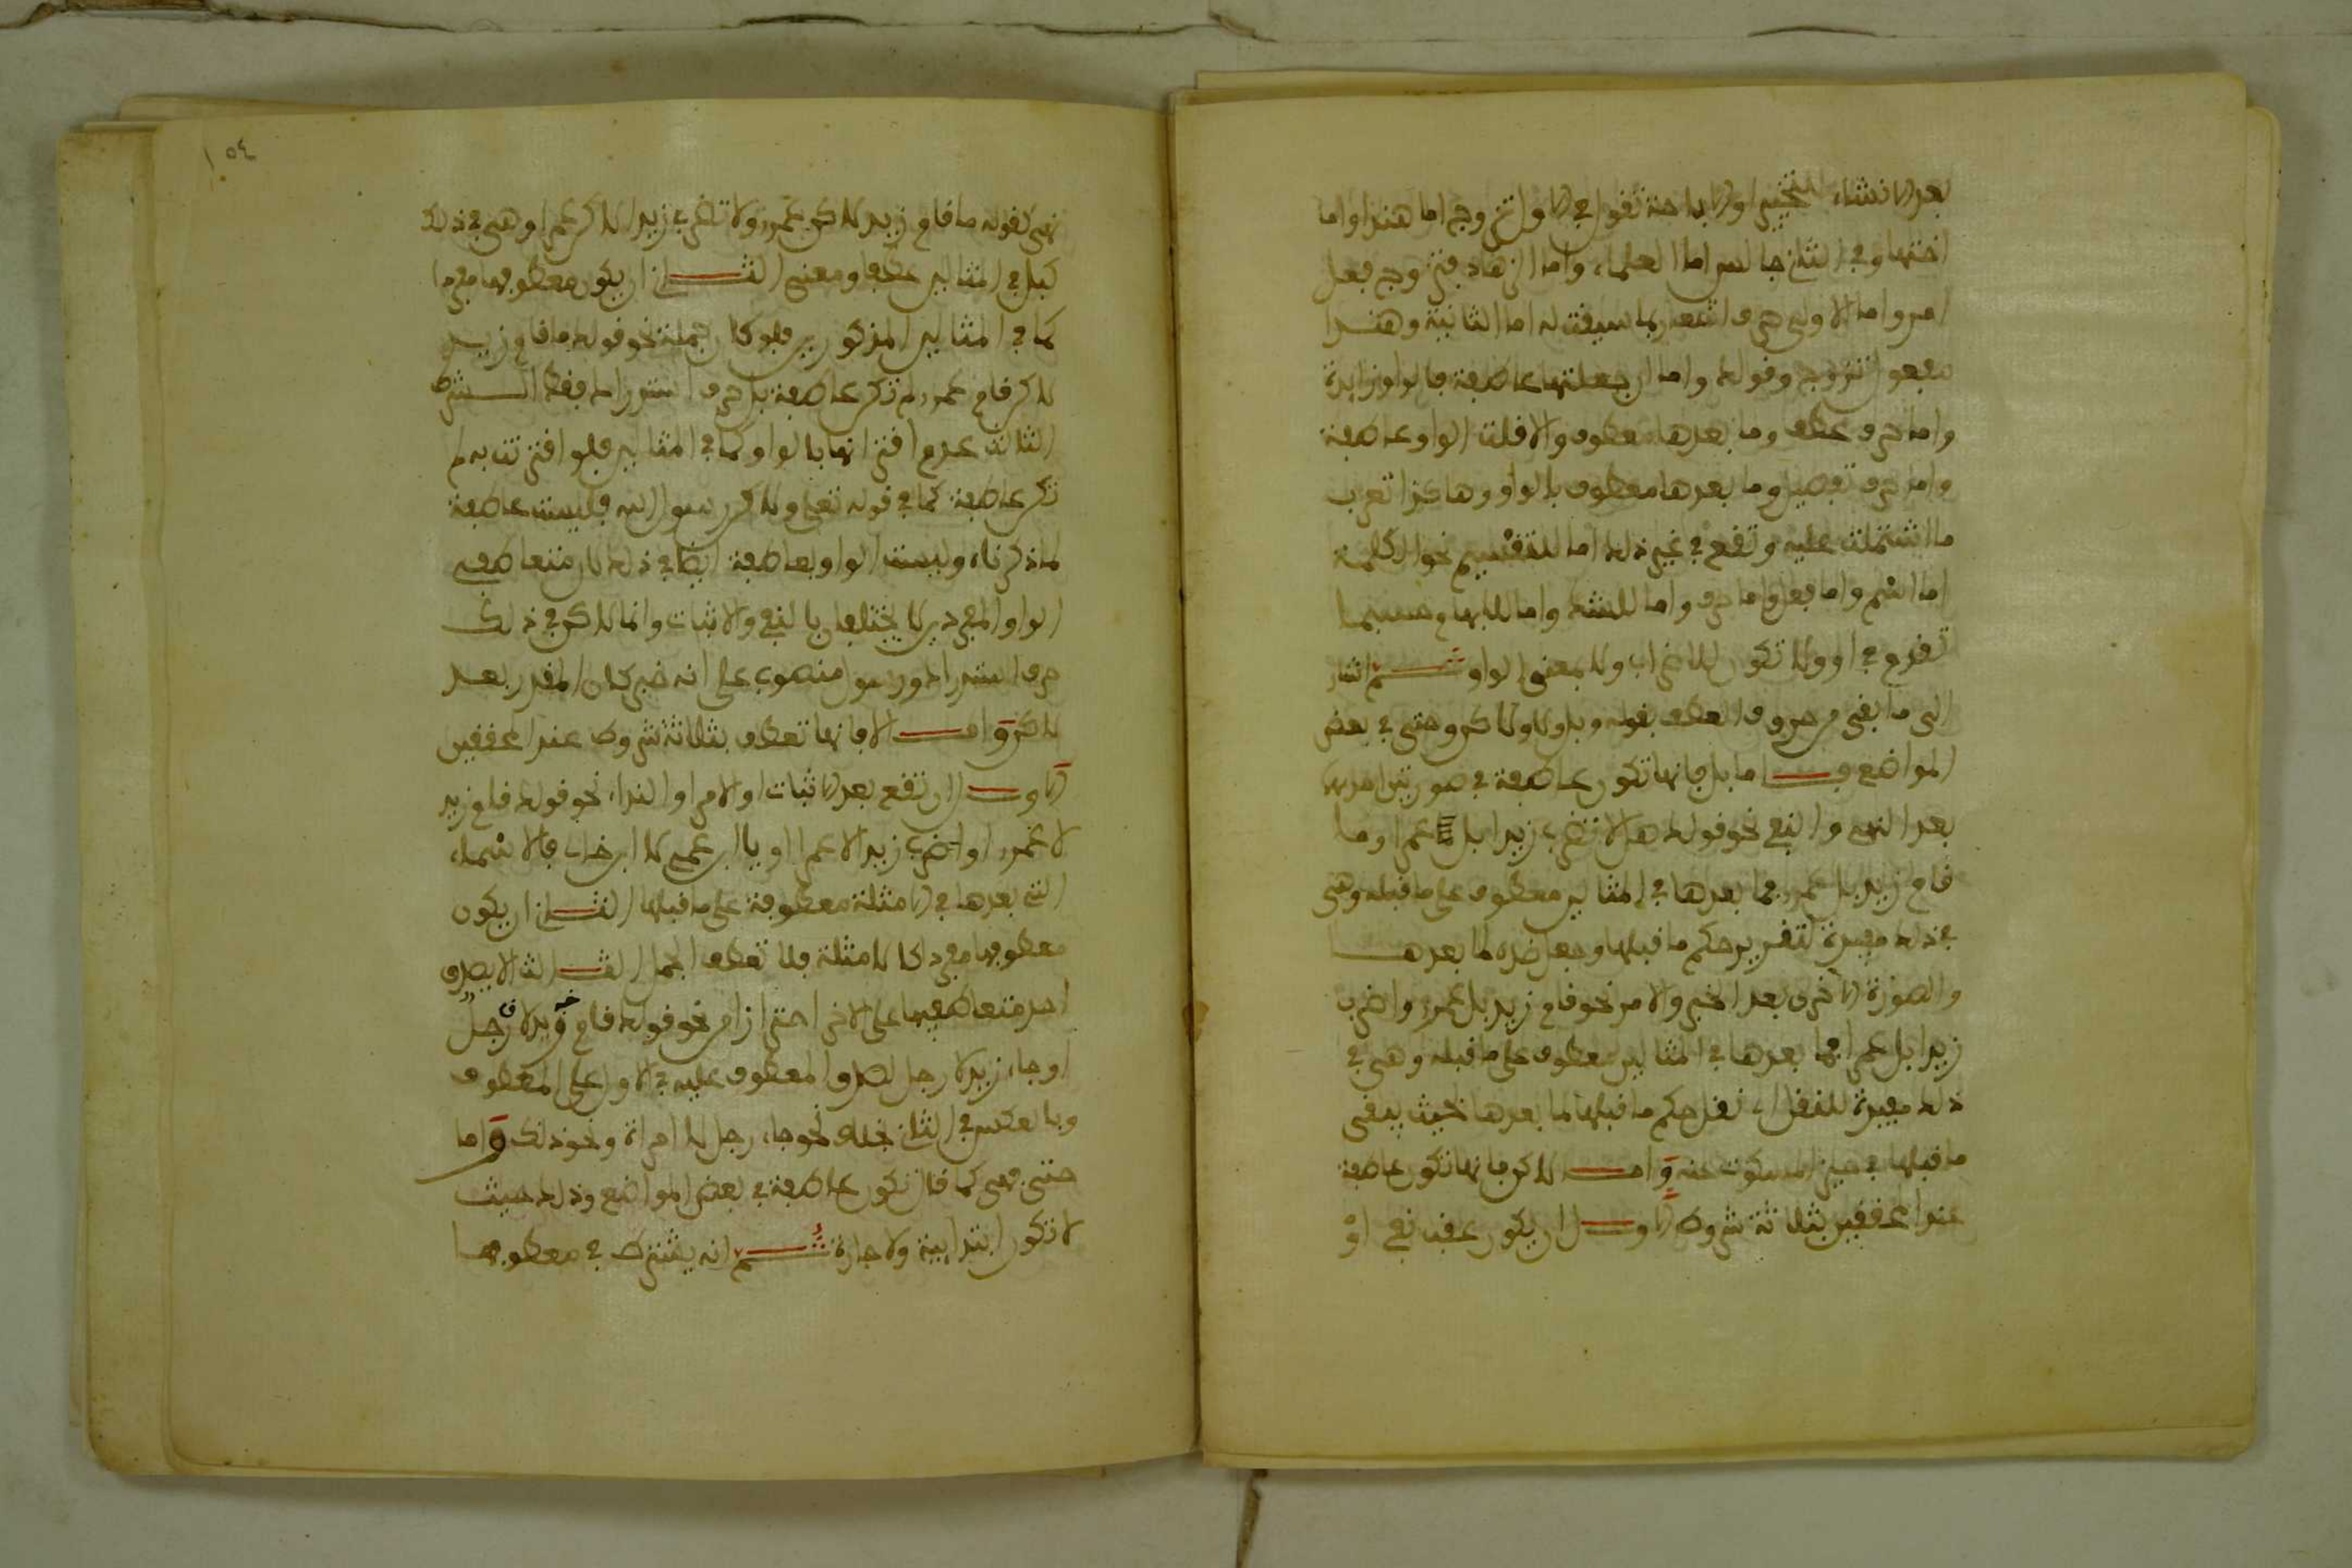 بعد الانشاء للتخيير او الاباحة تقول في الاول تزوج اما هندا واما
اختها وفي الثاني جالس اما العلماء واما الزهاد فتزوج فعل
امر واما الاولى حرف اشعار بما سيقت له اما الثانية وهندا
مفعول تزوج وقولك واما ان جعلتها عاطفة فالواو زايدة
واما حرف عطف وما بعدها معطوف والا قلت الواو عاطفة
واما حرف تفصيل وما بعدها معطوف بالواو وهاكذا تعرب
ما اشتملت عليه وتقع في غير ذلك اما للتقسيم نحو الكلمة
اما اسم واما فعل واما حرف واما للشك واما للابهام حسبما
تقدم في او ولا تكون للاضراب ولا بمعنى الواو ثم اشار
الى ما بقي من حروف العطف بقوله وبل ولا ولاكن وحتى في بعض
المواضع فـاما بل فانها تكون عاطفة في صورتين احداهما
بعد النهي والنفي نحو قولك هلا لا تضرب زيدا بل عمرا وما
قام زيد بل عمرو فما بعدها في المثالين معطوف على ما قبله وهي
في ذلك مفيدة لتقرير حكم ما قبلها وجعل ضده لما بعدها
والصورة الاخرى بعد الخبر والامر نحو قام زيد بل عمرو واضرب
زيدا بل عمرا فما بعدها في المثالين معطوف على ما قبله وهي في
ذلك مفيدة للنقل اي نقل حكم ما قبلها لما بعدها بحيث يبقى
ما قبلها في حيز المسكوت عنه وامـا لاكن فانها تكون عاطفة
عند المحققين بثلاثة شروط الاول ان يكون عقب نفي او
١٠٥٤
نهي كقوله ما قام زيد لاكن عمرو ولا تضرب زيدا لاكن عمرا وهي في ذلك
كبل في المثالين عطفا ومعنى الثـاني ان يكون معطوفها مفردا
كما في المثالين المذكورين فلو كان جملة نحو قولك ما قام زيد
لاكن قام عمرو لم تكن عاطفة بل حرف استدراك فقط الشرط
الثالث عدم اقترانها بالواو كما في المثالين فلو اقترنت به لم
تكن عاطفة كما في قوله تعلى ولاكن رسول الله فليست عاطفة
لما ذكرناه وليست الواو بعاطفة ايضا في ذلك لان متعاطفي
الواو المفردين لا يختلفان بالنفي والاثبات وانما لاكن في ذلك
حرف استدراك ورسول منصوب على انه خبر لكان المقدر بعد
لاكن وامـا لا فانها تعطف بثلاثة شروط عند المحققين
الاول ان تقع بعد الاثبات او الامر او النداء نحو قولك قام زيد
لا عمرو او اضرب زيدا لا عمرا او يا ابن عمي لا ابن خال فالاسماء
التي بعدها في الامثلة معطوفة على ما قبلها الثـاني ان يكون
معطوفها مفردا كالامثلة فلا تعطف الجمل الثـالث ان لا يصدق
احد متعاطفيها على الاخر احترازا من نحو قولك قام زيد لا رجل
او جاء زيد لا رجل لصدق المعطوف عليه في الاول على المعطوف
وبالعكس في الثاني بخلاف نحو جاء رجل لا امراة ونحو ذلك واما
حتى فهي كما قال تكون عاطفة في بعض المواضع وذلك حيث
لا تكون ابتدايية ولا جارة ثم انه يشترط في معطوفها